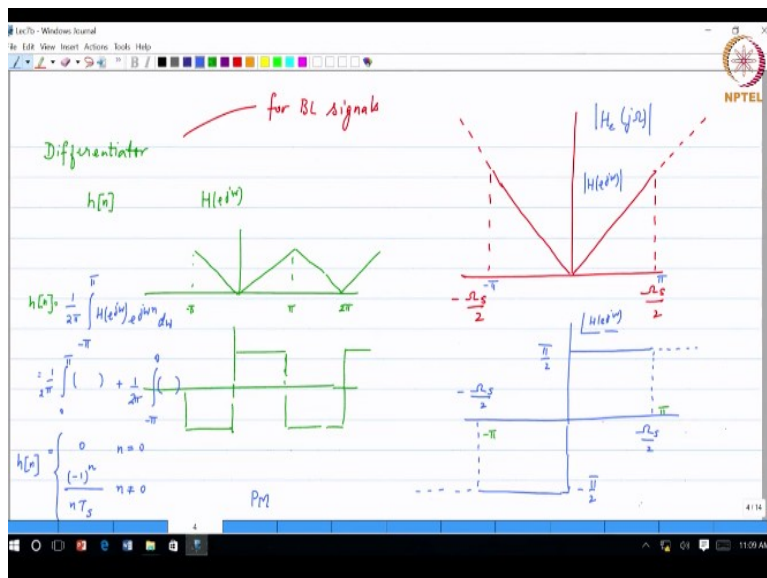 Lec7b - Windows Journal
File Edit View Insert Actions Tools Help
NPTEL
for BL signals
Differentiator
h[n] H(e^{jω})
-π π 2π
h[n] = \frac{1}{2π} \int_{-π}^{π} H(e^{jω}) e^{jωn} dω
= \frac{1}{2π} \int_{0}^{π} ( ) + \frac{1}{2π} \int_{-π}^{0} ( )
h[n] = { 0 n = 0
\frac{(-1)^n}{nT_s} n ≠ 0
PM
|H_c(jΩ)|
|H(e^{jω})|
-π π
-\frac{Ω_s}{2} \frac{Ω_s}{2}
∠H(e^{jω})
\frac{π}{2}
-\frac{Ω_s}{2}
-π π
\frac{Ω_s}{2}
-\frac{π}{2}
4
4/14
11:09 AM